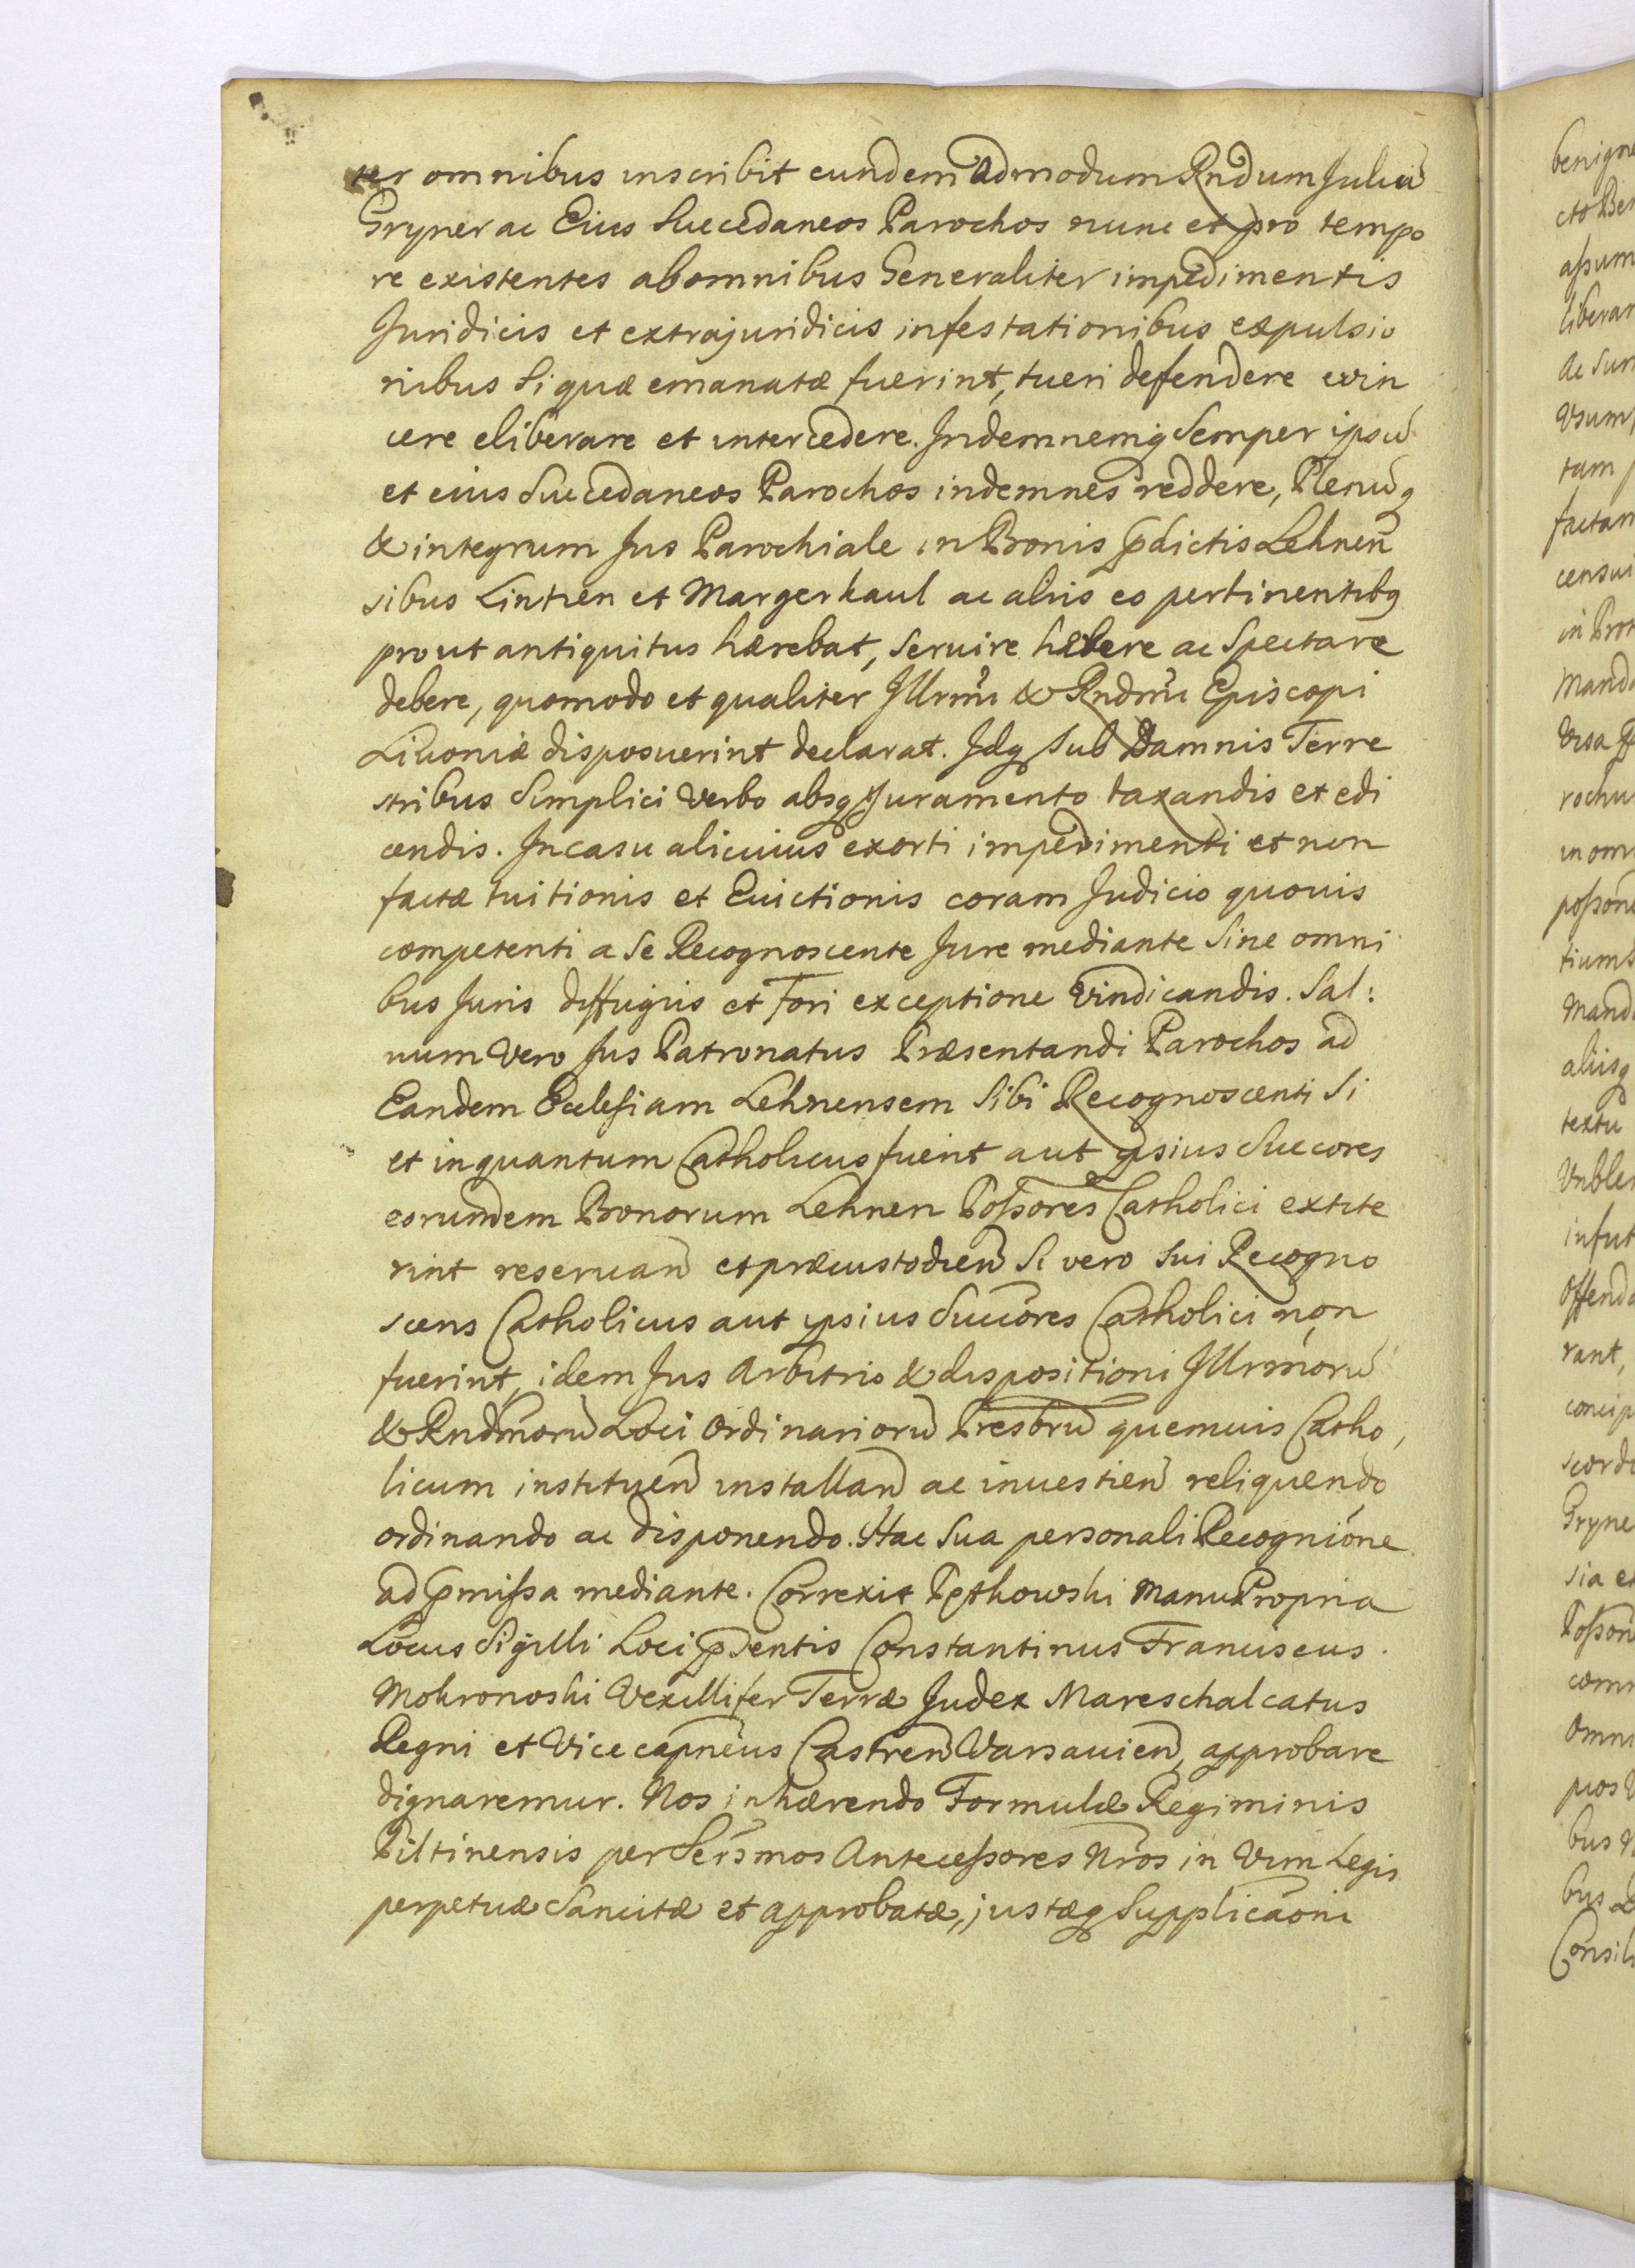 ter omnibus inscribit eundem Admodum Rndum Juliū
Gryner ac Eius Succedaneos Parochos nunc et pro tempo
re existentes ab omnibus Generaliter impedimentis
Juridicis et extrajuridicis infestationibus expulsio
nibus si quæ emanatæ fuerint, tueri defendere evin
cere eliberare et intercedere. Indemnemq semper ipsū
et eius Succedaneos Parochos indemnes reddere, Plenūq
& integrum Jus Parochiale in Bonis p̄dictis Lehnen̄
sibus Lintzen et Margerkaul ac aliis eo pertinentibq
prout antiquitus hærebat, seruire habere ac Spectare
debere, quomodo et qualiter Illrm̄i & Rndm̄i Episcopi
Liuoniæ disposuerint declarat. Idq sub Damnis Terre
stribus Simplici Verbo absq Juramento taxandis et edi
cendis. In casu alicuius exorti impedimenti et non
factæ tuitionis et Euictionis coram Judicio quouis
competenti a se Recognoscente Jure mediante Sine omni
bus Juris diffugiis et Fori exceptione Vindicandis. Sal:
uum Vero Jus Patronatus Præsentandi Parochos ad
Eandem Ecclesiam Lehnensem Sibi Recognoscenti Si
et inquantum Catholicus fuerit aut ipsius Succores
eorundem Bonorum Lehnen Possores Catholici extite
rint reseruan̄ et præcustodien̄ Si vero sui Recogno
scens Catholicus aut ipsius Succōres Catholici non
fuerint, idem Jus Arbitrio & dispositioni Illrmorū
& Rndmorū Loci Ordinariorū Presbrū quemuis Catho,
licum instituen̄ installan̄ ac inuestien̄ reliquendo
ordinando ac disponendo. Hac Sua personali Recogniōne
ad p̄missa mediante. Correxit Manu Propria
Locus Sigilli Loci p̄sentis Constantinus Franciscus.
Mokronoski Vexillifer Terræ Judex Mareschalcatus
Regni et Vicecapnēus Castren̄ Varsauien̄, approbare
dignaremur. Nos inhærendo Formulæ Regiminis
Piltinensis per Serṡmos Antecessores Nros in Vim Legis
perpetuæ Sancitæ et approbatæ, justæq Supplicaōni